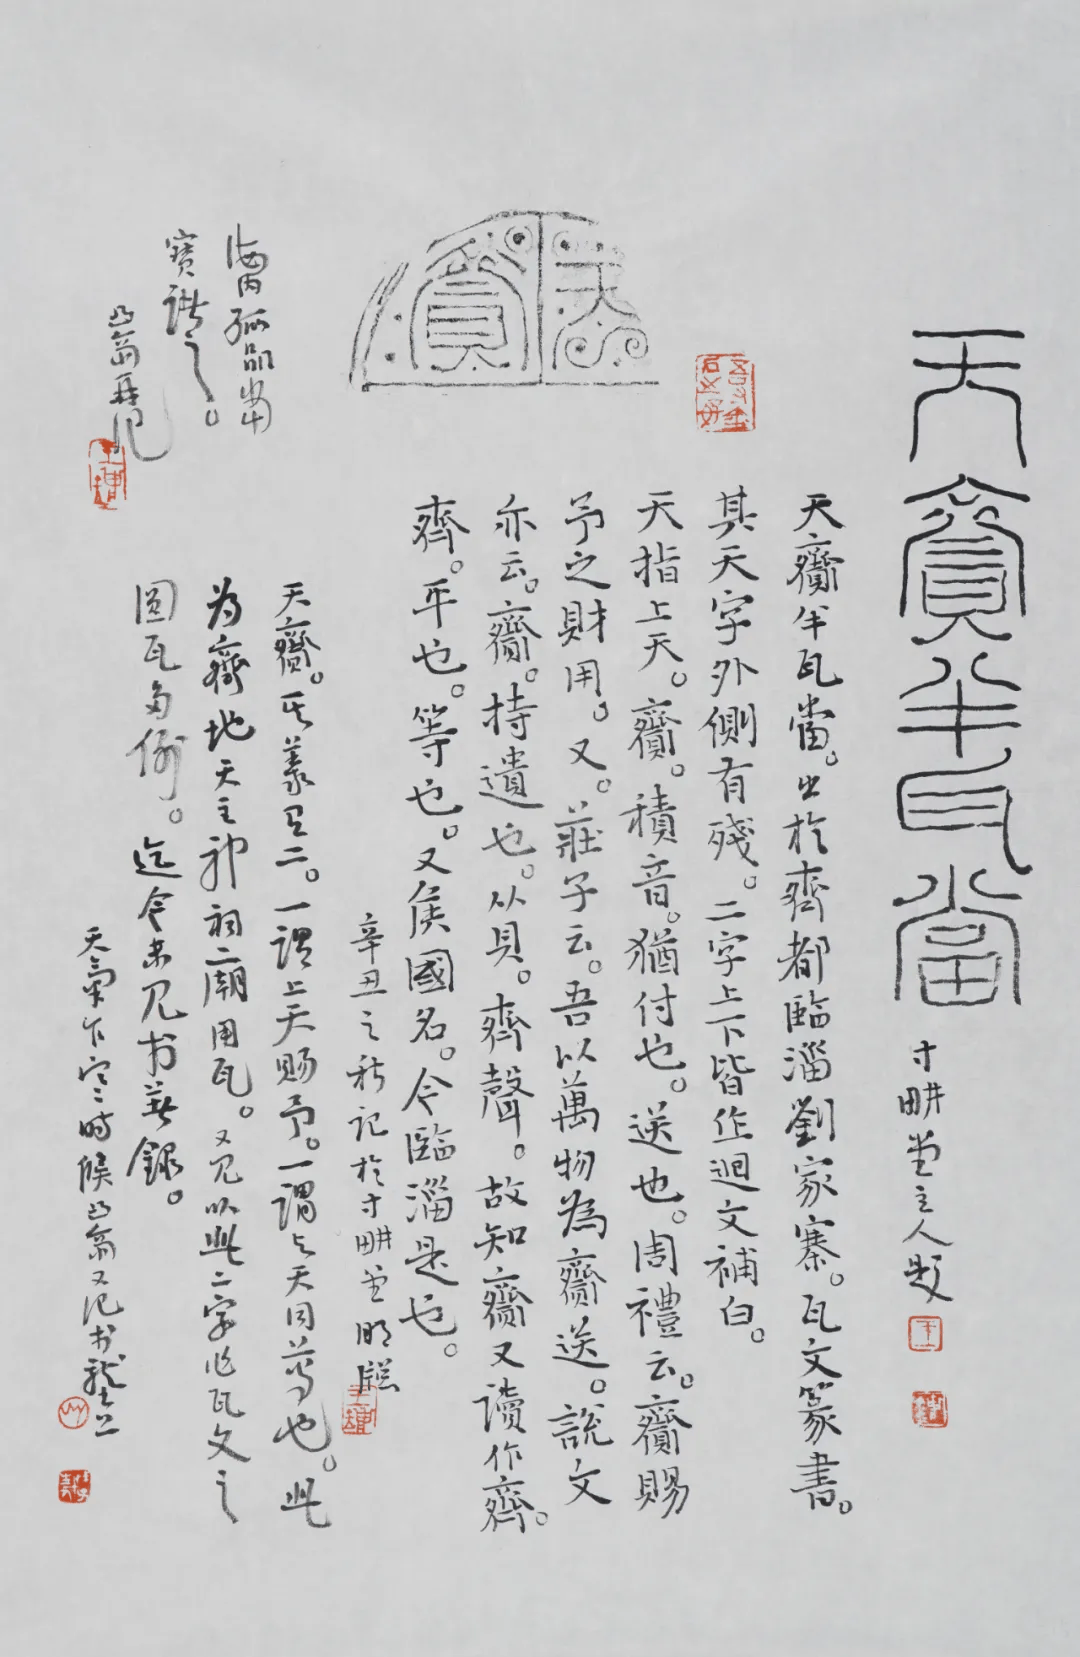 天齎半瓦當
寸畊堂主人題
天齎半瓦當。出於齊都臨淄劉家寨。瓦文篆書。
其天字外側有殘。二字上下皆作迴文補白。
天指上天。齎。積音。猶付也。送也。周禮云。齎賜
予之財用。又。莊子云。吾以萬物為齎送。說文
亦云。齎。持遺也。从貝。齊聲。故知齎又讀作齊。
齊。平也。等也。又侯國名。今臨淄是也。
辛丑之秋記於寸畊堂明牕
天齎。其義有二。一謂上天賜予。一謂与天同等也。此
为齊地天主祁祠之廟用瓦。又見以此二字作瓦文之
圆瓦多例。迄今未見书著錄。
天氣乍寒時候凸翁又记于
海内孤品當
寶諸之。
凸翁再记